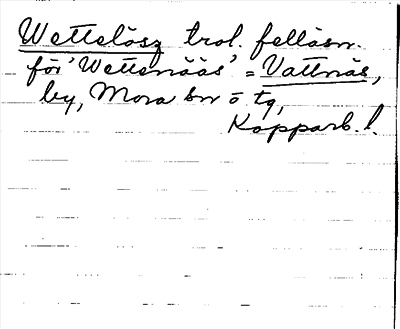 Wettelösz trol. felläsn.
för 'Wettenääs' = Vattnäs,
by, Mora sn o tg,
Kopparb. l.